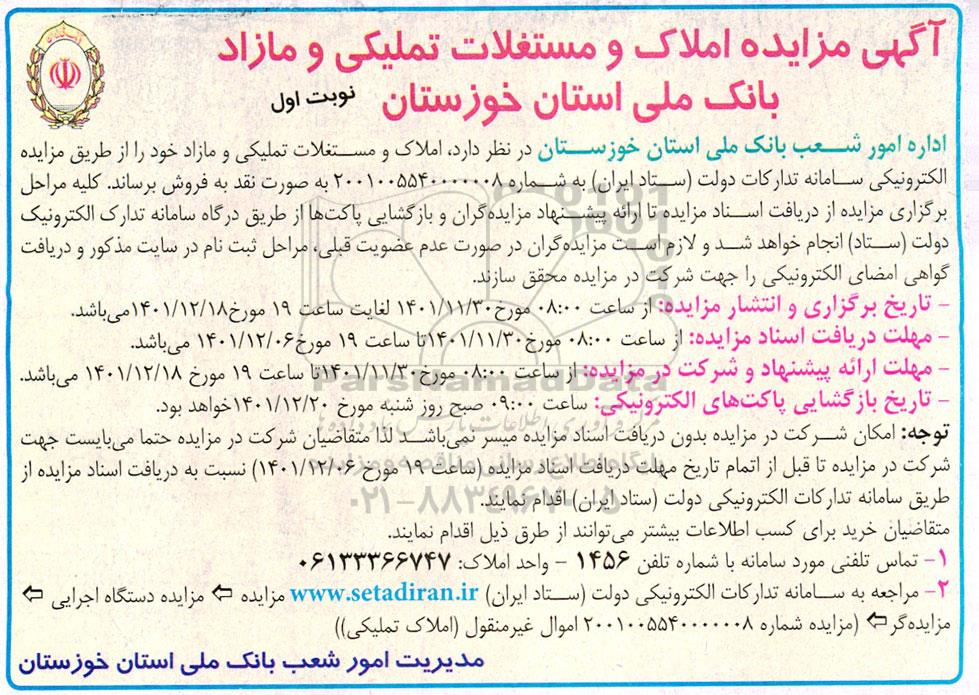 آگهی مزایده املاک و مستغلات تملیکی و مازاد
بانک ملی استان خوزستان نوبت اول
اداره امور شعب بانک ملی استان خوزستان در نظر دارد، املاک و مستغلات تملیکی و مازاد خود را از طریق مزایده
الکترونیکی سامانه تدارکات دولت (ستاد ایران) به شماره ۲۰۰۱۰۰۵۵۴۰۰۰۰۰۰۸ به صورت نقد به فروش برساند. کلیه مراحل
برگزاری مزایده از دریافت اسناد مزایده تا ارائه پیشنهاد مزایده‌گران و بازگشایی پاکت‌ها از طریق درگاه سامانه تدارک الکترونیک
دولت (ستاد) انجام خواهد شد و لازم است مزایده‌گران در صورت عدم عضویت قبلی، مراحل ثبت نام در سایت مذکور و دریافت
گواهی امضای الکترونیکی را جهت شرکت در مزایده محقق سازند.
- تاریخ برگزاری و انتشار مزایده: از ساعت ۰۸:۰۰ مورخ ۱۴۰۱/۱۱/۳۰ لغایت ساعت ۱۹ مورخ ۱۴۰۱/۱۲/۱۸می‌باشد.
- مهلت دریافت اسناد مزایده: از ساعت ۰۸:۰۰ مورخ ۱۴۰۱/۱۱/۳۰تا ساعت ۱۹ مورخ ۱۴۰۱/۱۲/۰۶ می‌باشد.
- مهلت ارائه پیشنهاد و شرکت در مزایده: از ساعت ۰۸:۰۰ مورخ ۱۴۰۱/۱۱/۳۰تا ساعت ۱۹ مورخ ۱۴۰۱/۱۲/۱۸ می‌باشد.
- تاریخ بازگشایی پاکت‌های الکترونیکی: ساعت ۰۹:۰۰ صبح روز شنبه مورخ ۱۴۰۱/۱۲/۲۰خواهد بود.
توجه: امکان شرکت در مزایده بدون دریافت اسناد مزایده میسر نمی‌باشد لذا متقاضیان شرکت در مزایده حتما می‌بایست جهت
شرکت در مزایده تا قبل از اتمام تاریخ مهلت دریافت اسناد مزایده (ساعت ۱۹ مورخ ۱۴۰۱/۱۲/۰۶) نسبت به دریافت اسناد مزایده از
طریق سامانه تدارکات الکترونیکی دولت (ستاد ایران) اقدام نمایند.
متقاضیان خرید برای کسب اطلاعات بیشتر می‌توانند از طرق ذیل اقدام نمایند.
۱- تماس تلفنی مورد سامانه با شماره تلفن ۱۴۵۶ - واحد املاک: ۰۶۱۳۳۳۶۶۷۴۷
۲- مراجعه به سامانه تدارکات الکترونیکی دولت (ستاد ایران) www.setadiran.ir مزایده ⇦ مزایده دستگاه اجرایی ⇦
مزایده‌گر⇦ (مزایده شماره ۲۰۰۱۰۰۵۵۴۰۰۰۰۰۰۸ اموال غیرمنقول (املاک تملیکی))
مدیریت امور شعب بانک ملی استان خوزستان
ParsNamadData
۰۲۱-۸۸۳۴۹۶۷۰-۵